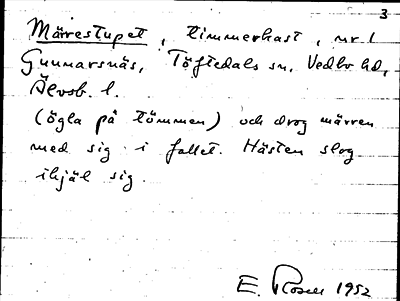 3
Märrestupet, timmerkast, nr 1
Gunnarsnäs, Töftedals sn, Vedbo hd,
Älvsb. l.
(ögla på tömmen) och drog märren
med sig i fallet. Hästen slog
ihjäl sig.
E. Rosell 1952